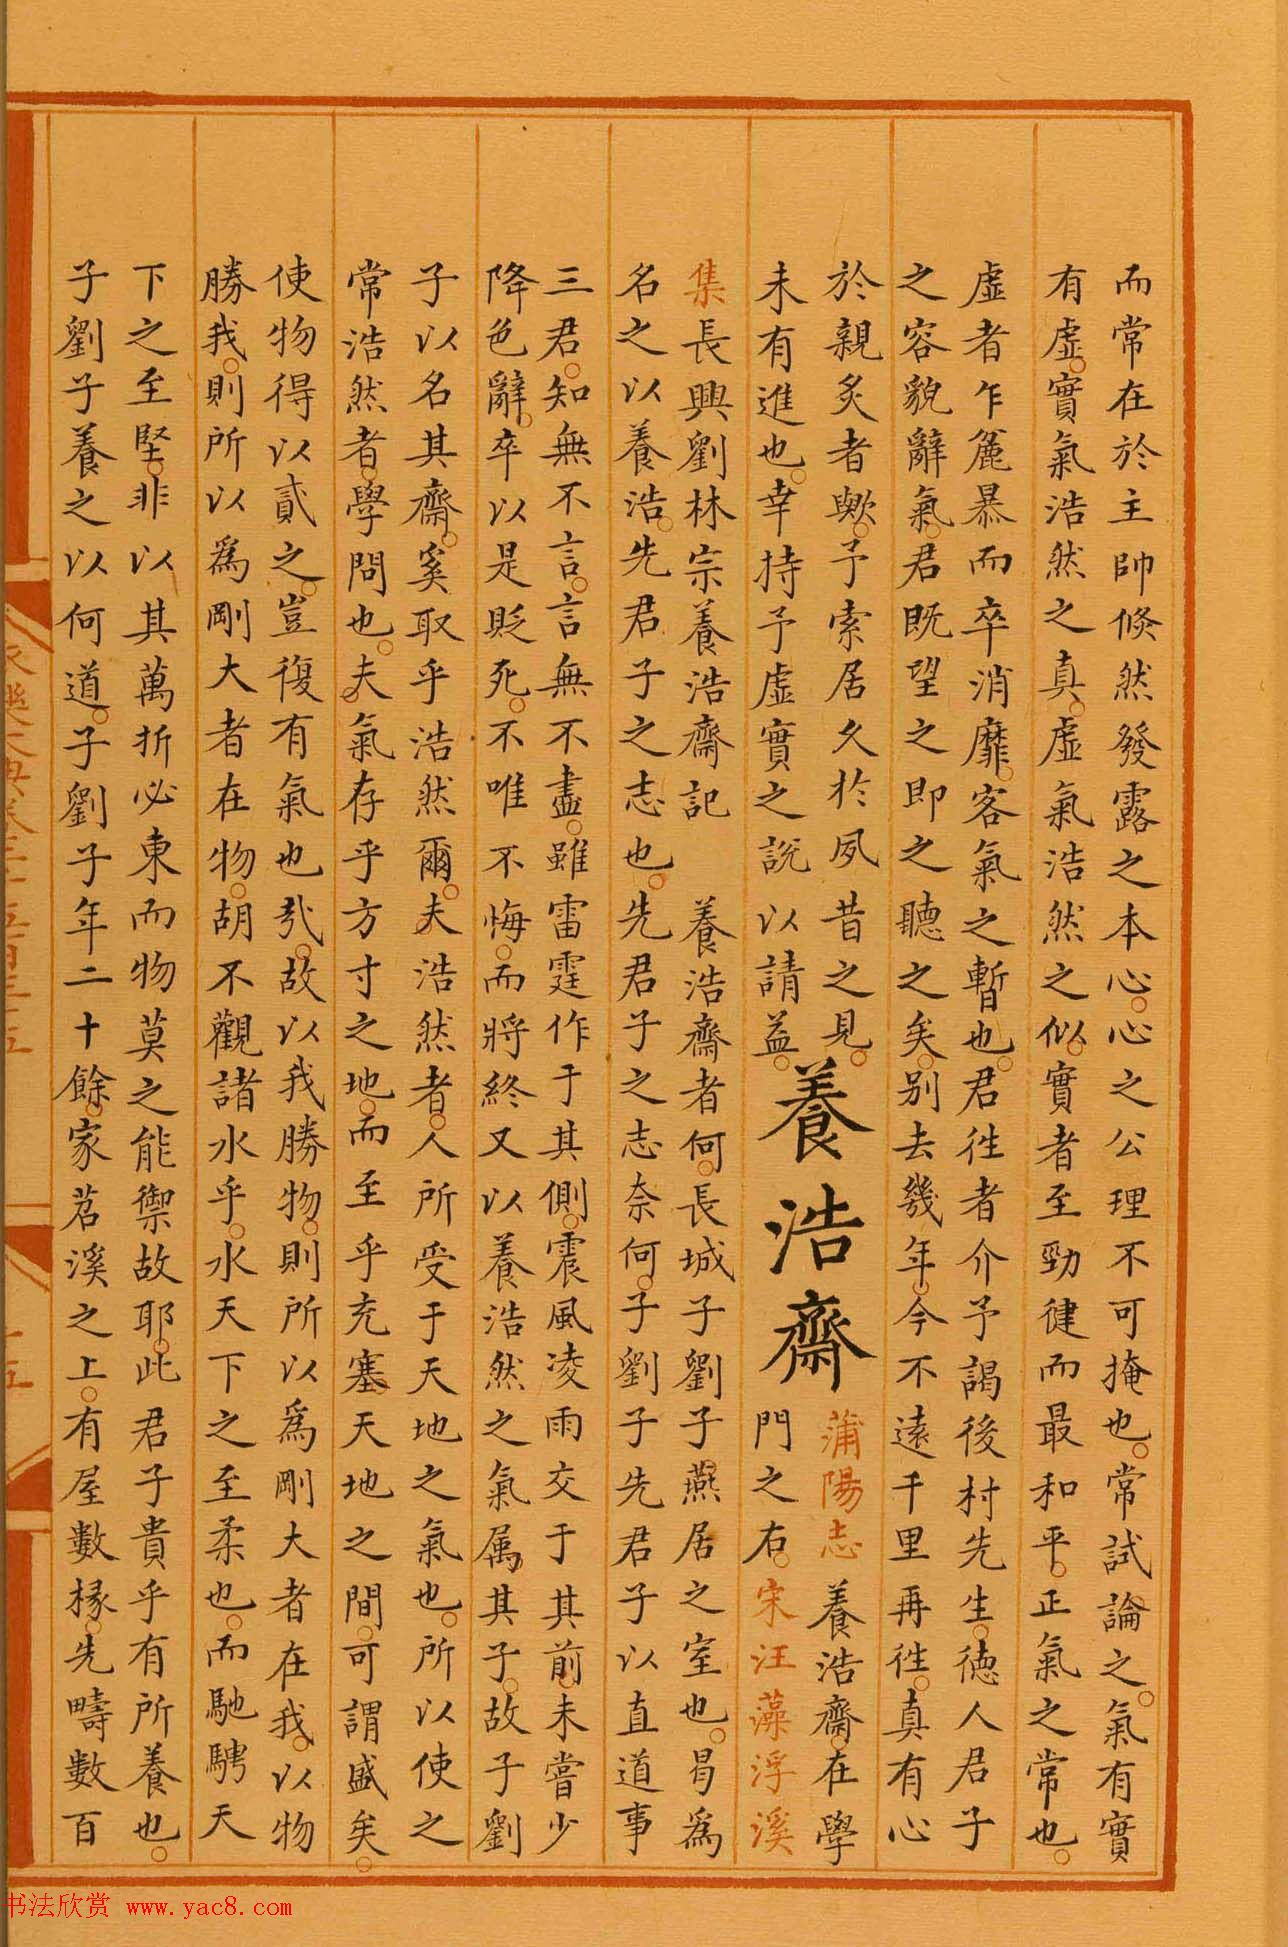 而常在於主帥倏然發露之本心心之公理不可掩也常試論之氣有實
有虛實氣浩然之真虛氣浩然之似實者至勁健而最和平正氣之常也
虛者乍麄暴而卒消靡客氣之暫也君徃者介予謁後村先生德人君子
之容貌辭氣君既望之即之聽之矣别去幾年今不遠千里再徃真有心
於親炙者歟予索居久於夙昔之見
未有進也幸持予虛實之說以請益
養浩齋
蒲陽志 養浩齋在學
門之右宋汪藻浮溪
集長興劉林宗養浩齋記 養浩齋者何長城子劉子燕居之室也曷為
名之以養浩先君子之志也先君子之志奈何子劉子先君子以直道事
三君知無不言言無不盡雖雷霆作于其側震風凌雨交于其前未嘗少
降色辭卒以是貶死不唯不悔而將終又以養浩然之氣属其子故子劉
子以名其齋奚取乎浩然爾夫浩然者人所受于天地之氣也所以使之
常浩然者學問也夫氣存乎方寸之地而至乎充塞天地之間可謂盛矣
使物得以貳之豈復有氣也㢤故以我勝物則所以為剛大者在我以物
勝我則所以為剛大者在物胡不觀諸水乎水天下之至柔也而馳騁天
下之至堅非以其萬折必東而物莫之能禦故耶此君子貴乎有所養也
子劉子養之以何道子劉子年二十餘家苕溪之上有屋數椽先疇數百
永樂大典卷二千五百三十五
十五
书法欣赏 www.yac8.com